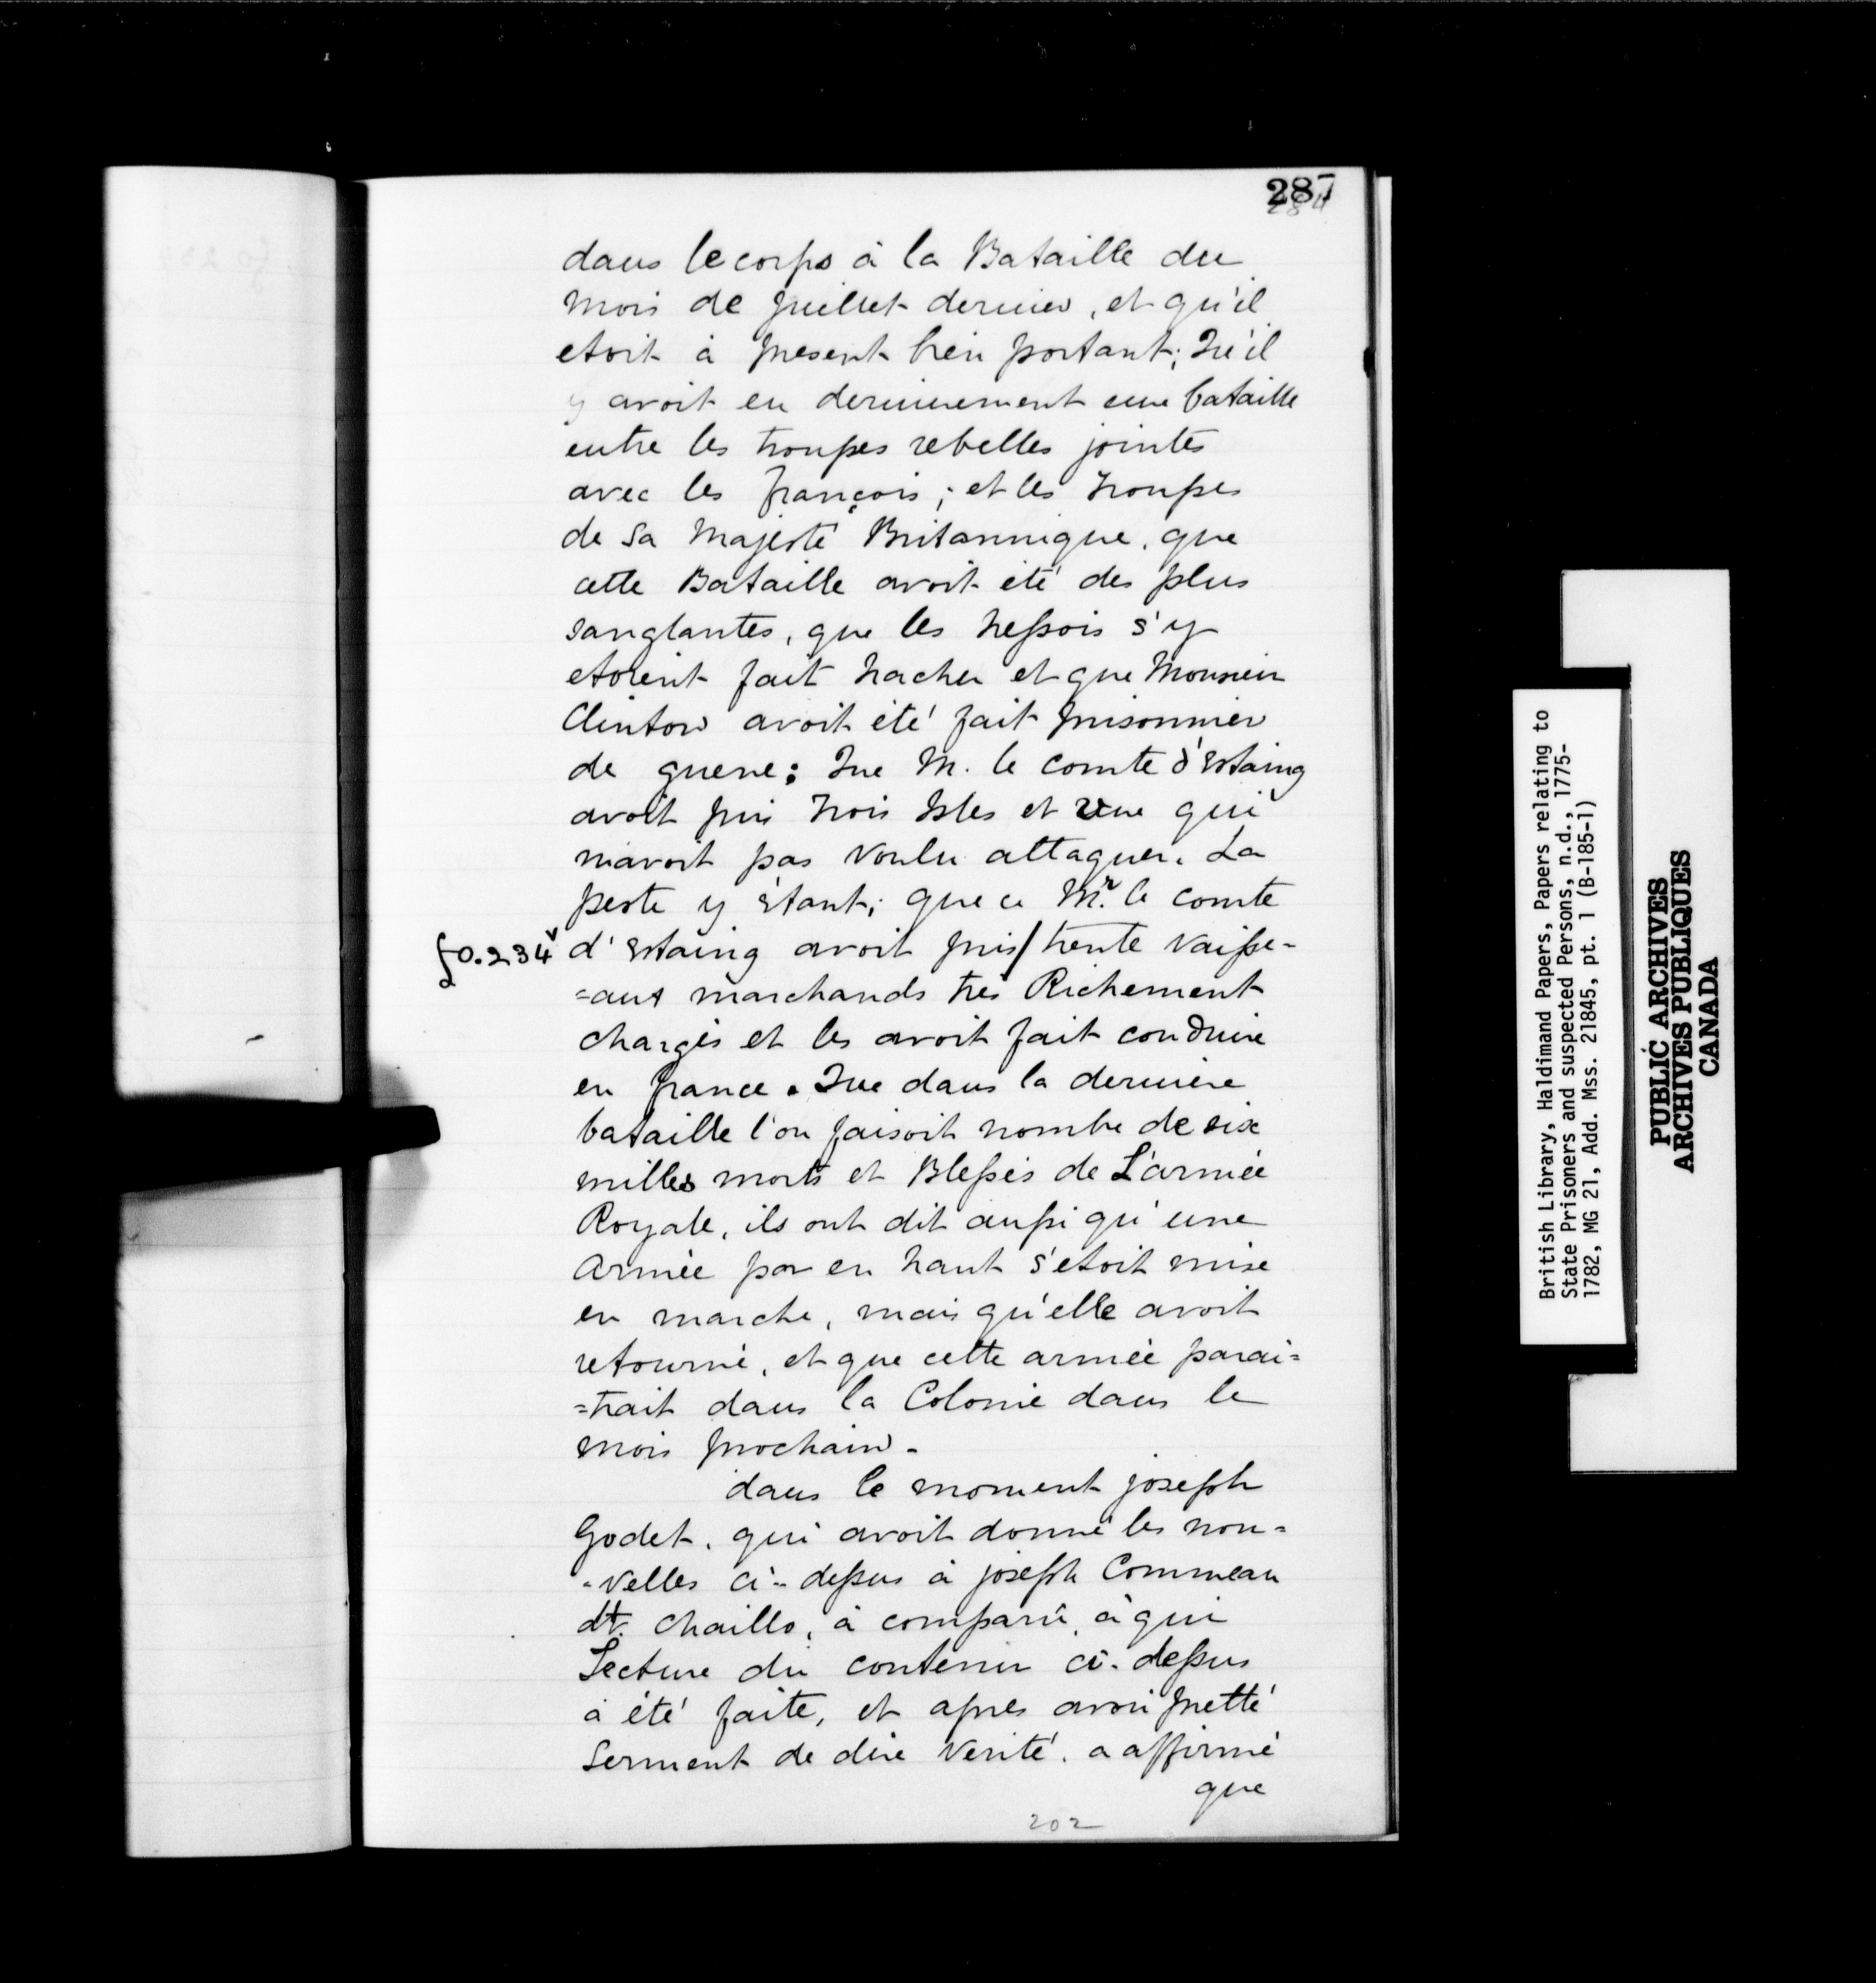 287
284
dans le corps à la Bataille du
mois de juillet dernier, et qu'il
etoit à present bien portant; Qu'il
y avoit eu dernierement une bataille
entre les troupes rebelles jointes
avec les françois; et les troupes
de sa Majesté Britannique, que
cette Bataille avoit été des plus
sanglantes, que les heſsois s'y
etoient fait hacher et que Monsieur
Clinton avoit été fait prisonnier
de guerre: Que M. le comte d'Estaing
avoit pris trois Isles et une qui
n'avoit pas voulu attaquer. La
peste y étant; que ce Mr. le comte
fo. 234v d'Estaing avoit pris/trente vaiſse-
=aux marchands très Richement
chargés et les avoit fait conduire
en france. Que dans la derniere
bataille l'on faisoit nombre de six
milles morts et Bleſsés de L'armée
Royale, ils ont dit auſsi qu'une
Armée par en haut s'etoit mise
en marche, mais qu'elle avoit
retourné, et que cette armée parai=
=trait dans la Colonie dans le
mois prochain.
dans le moment joseph
Godet, qui avoit donné les nou=
=velles ci-deſsus à joseph Commeau
dt. Chaillo, à comparû, à qui
Lecture du contenu ci-deſsus
a été faite, et apres avoir pretté
Serment de dire Verité, a affirmé
que
202
British Library, Haldimand Papers, Papers relating to
State Prisoners and suspected Persons, n.d., 1775-
1782, MG 21, Add. Mss. 21845, pt. 1 (B-185-1)
PUBLIC ARCHIVES
ARCHIVES PUBLIQUES
CANADA